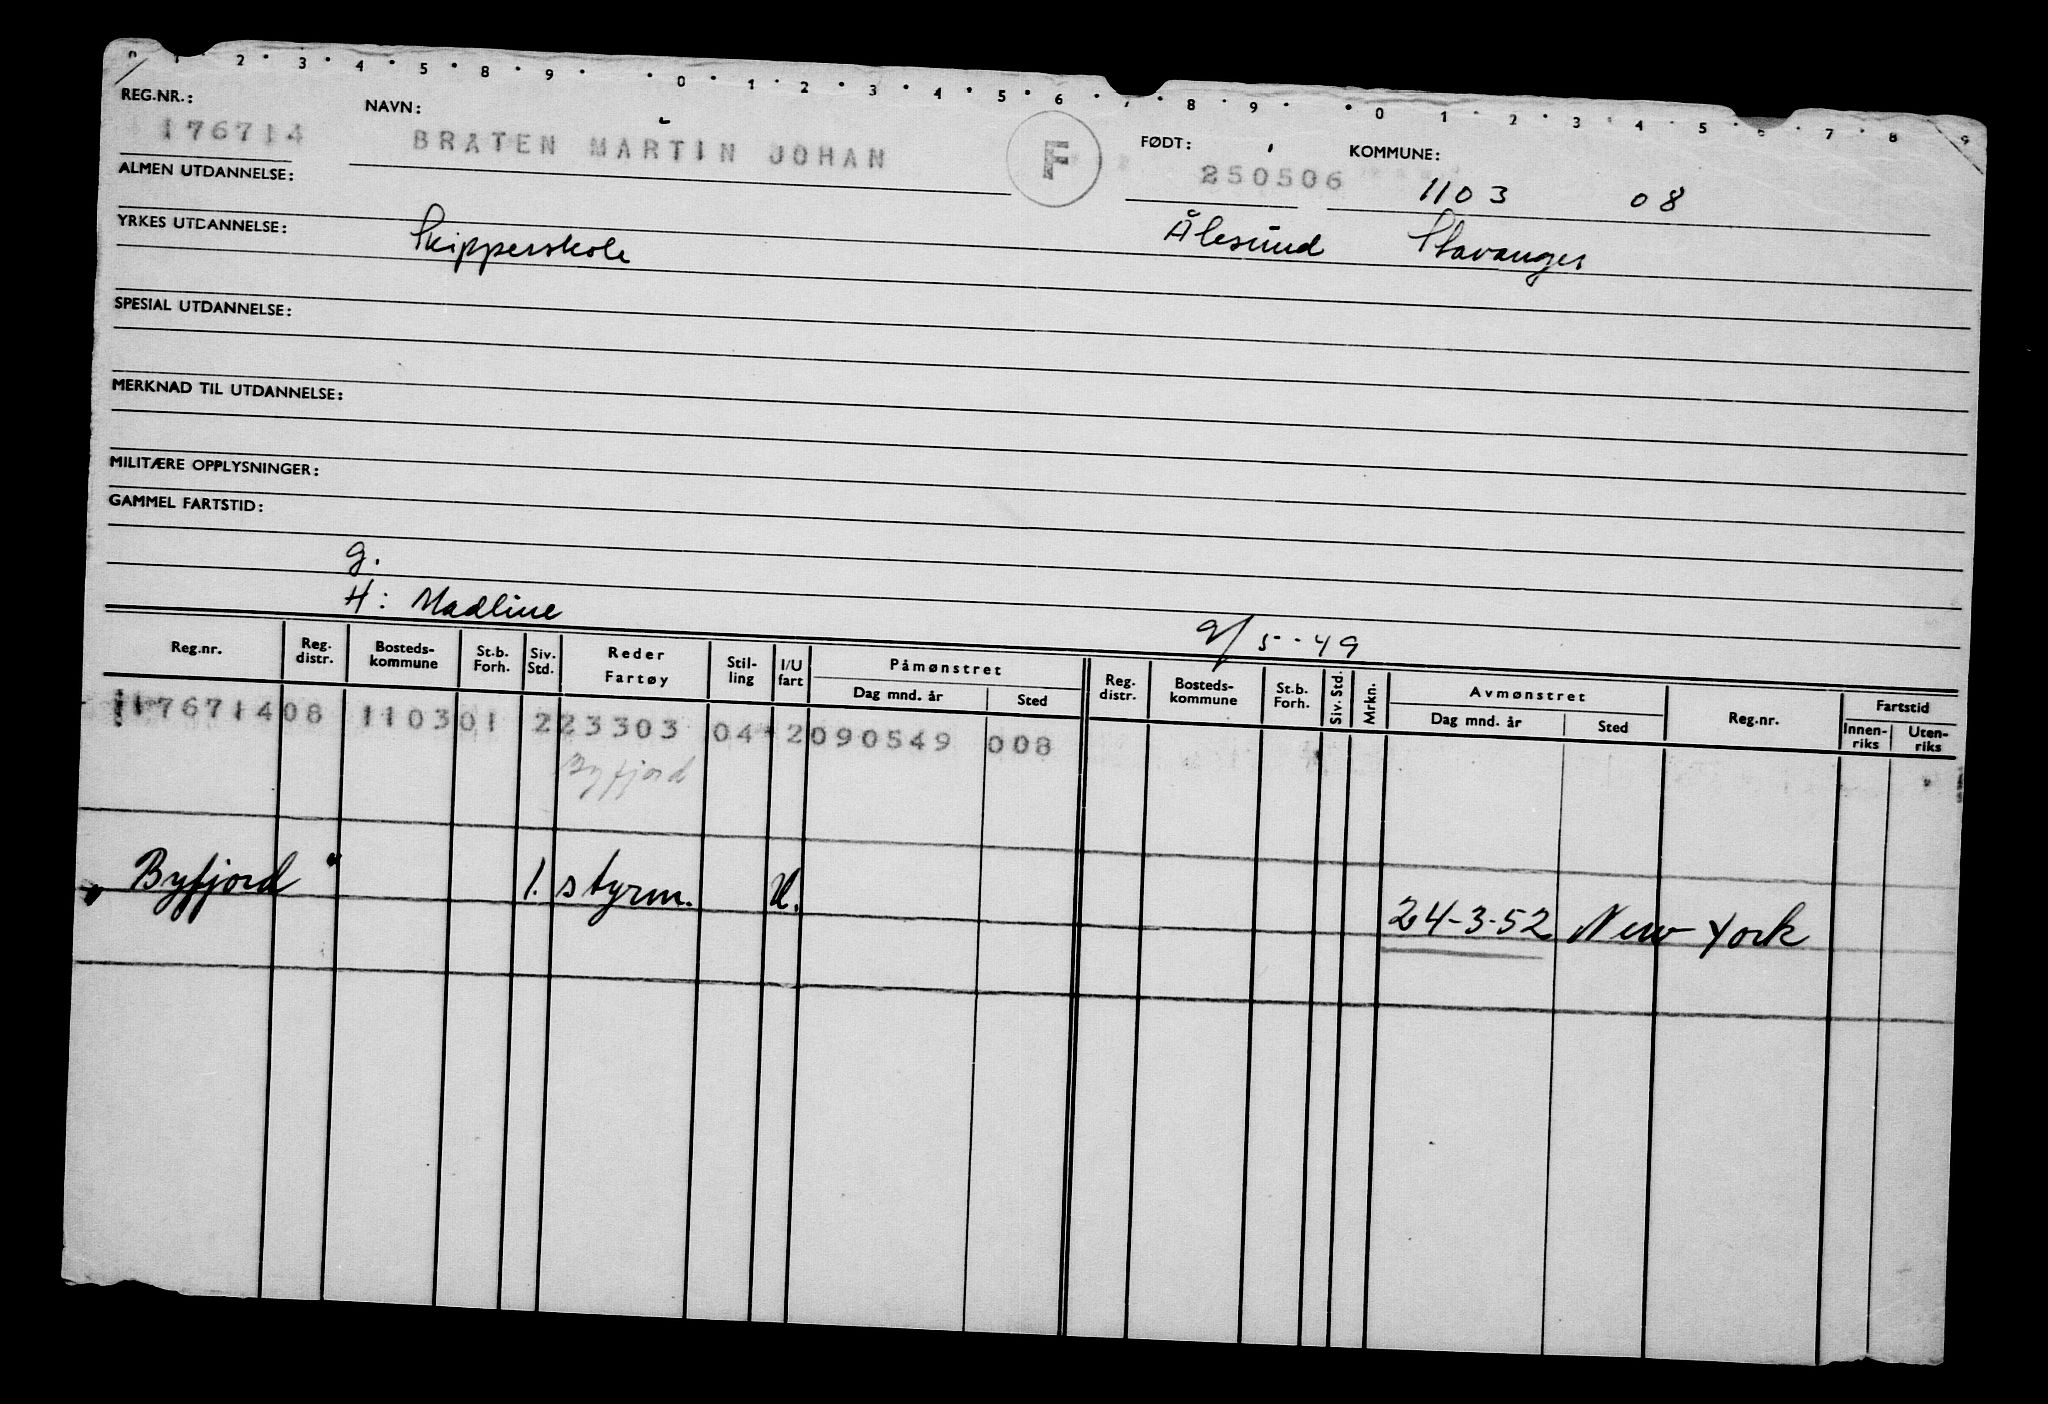 0 1 · 2 · 3 · 4 · 5 · 8 · 9 · · 0 · 1 · 2 · 3 · 4 · 5 · 6 · 7 · 8 · 9 · · 0 1 · 2 · 3 · 4 · 5 · 6 · 7 · 8 · 9
REG.NR.: NAVN: FØDT: KOMMUNE:
176714 BRÅTEN MARTIN JOHAN F 250506 1103 08
ALMEN UTDANNELSE:
YRKES UTDANNELSE: Skipperskole Ålesund Stavanger
SPESIAL UTDANNELSE:
MERKNAD TIL UTDANNELSE:
MILITÆRE OPPLYSNINGER:
GAMMEL FARTSTID:
g.
H: Madline 9/5-49
Reg.nr. Reg. distr. Bosteds-kommune St.b. Forh. Siv. Std. Reder Fartøy Stil-ling I/U fart Påmønstret Dag mnd. år Sted Reg. distr. Bosteds-kommune St.b. Forh. Siv. Std. Mrkn. Avmønstret Dag mnd. år Sted Reg.nr. Fartstid Innen-riks Uten-riks
176714 08 1103 01 2 23303 04 2 090549 008
Byfjord
"Byfjord" 1. styrm. U. 24-3-52 New York